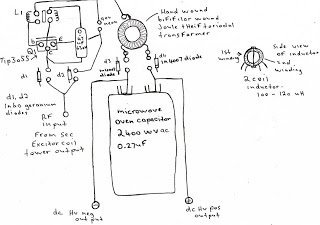 L1
Hand wound
bifilar wound
Joule thief toriodial
transformer
neon
Tip3055
d1
d2
d3
d4
in4007 diode
1st
winding
Side view
of inductor
2nd
winding
2 coil
inductor-
100-120 uH
d1, d2
in60 geranum
diodes
RF
input
From sec
Exciter coil
tower output
microwave
oven capacitor
2400 WVac
0.27uF
dc Hv neg
output
dc Hv pos
output